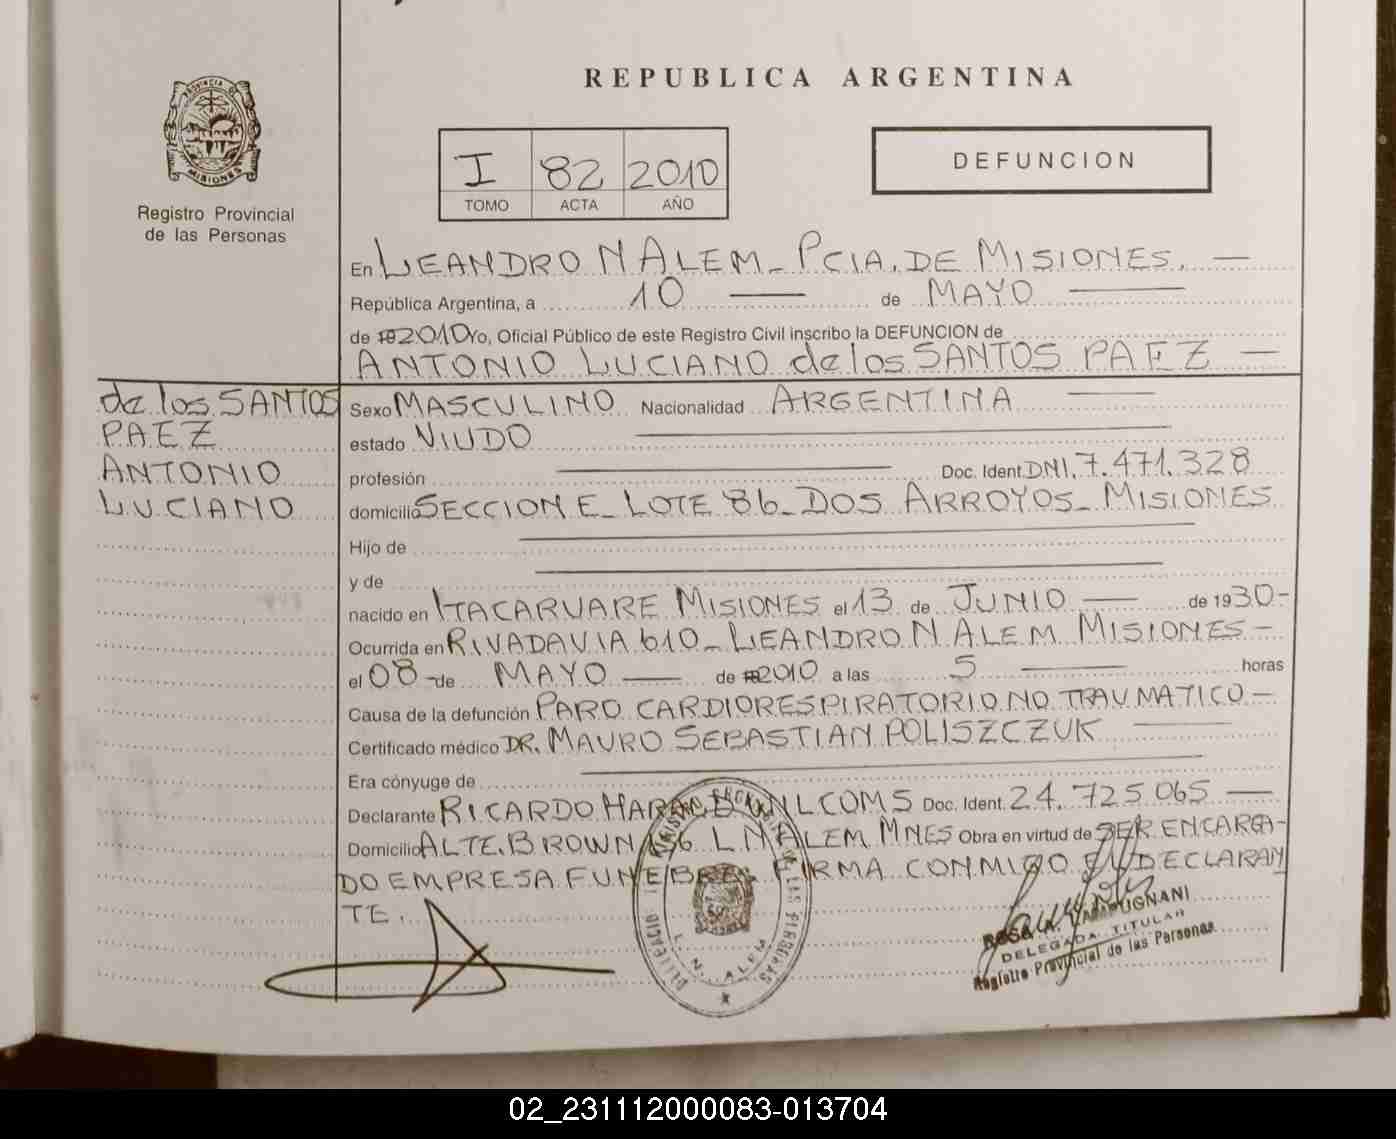 REPUBLICA ARGENTINA
PROVINCIA DE
MISIONES
Registro Provincial
de las Personas
I 82 2010
TOMO ACTA AÑO
DEFUNCION
En LEANDRO N ALEM - PCIA. DE MISIONES. —
República Argentina, a 10 — de MAYO —
de 19 2010 Yo, Oficial Público de este Registro Civil inscribo la DEFUNCION de
ANTONIO LUCIANO de los SANTOS PAEZ —
de los SANTOS
PAEZ
ANTONIO
LUCIANO
Sexo MASCULINO Nacionalidad ARGENTINA —
estado VIUDO —
profesión — Doc. Ident. DNI. 7.471.328
domicilio SECCION E - LOTE 86 - DOS ARROYOS - MISIONES
Hijo de —
y de —
nacido en ITACARUARE MISIONES el 13 de JUNIO — de 1930 -
Ocurrida en RIVADAVIA 610 - LEANDRO N ALEM MISIONES -
el 08 - de MAYO — de 19 2010 a las 5 — horas
Causa de la defunción PARO CARDIORESPIRATORIO NO TRAUMATICO -
Certificado médico DR. MAURO SEBASTIAN POLISZCZUK —
Era cónyuge de —
Declarante RICARDO Doc. Ident. 24.725.065 —
Domicilio ALTE. BROWN L N ALEM MNES Obra en virtud de SER ENCARGA-
DO EMPRESA FUNEBRE. FIRMA CONMIGO DECLARAN
TE.
L. N. ALEM
ROSA A. LAMPUGNANI
DELEGADA TITULAR
Registro Provincial de las Personas
02_231112000083-013704